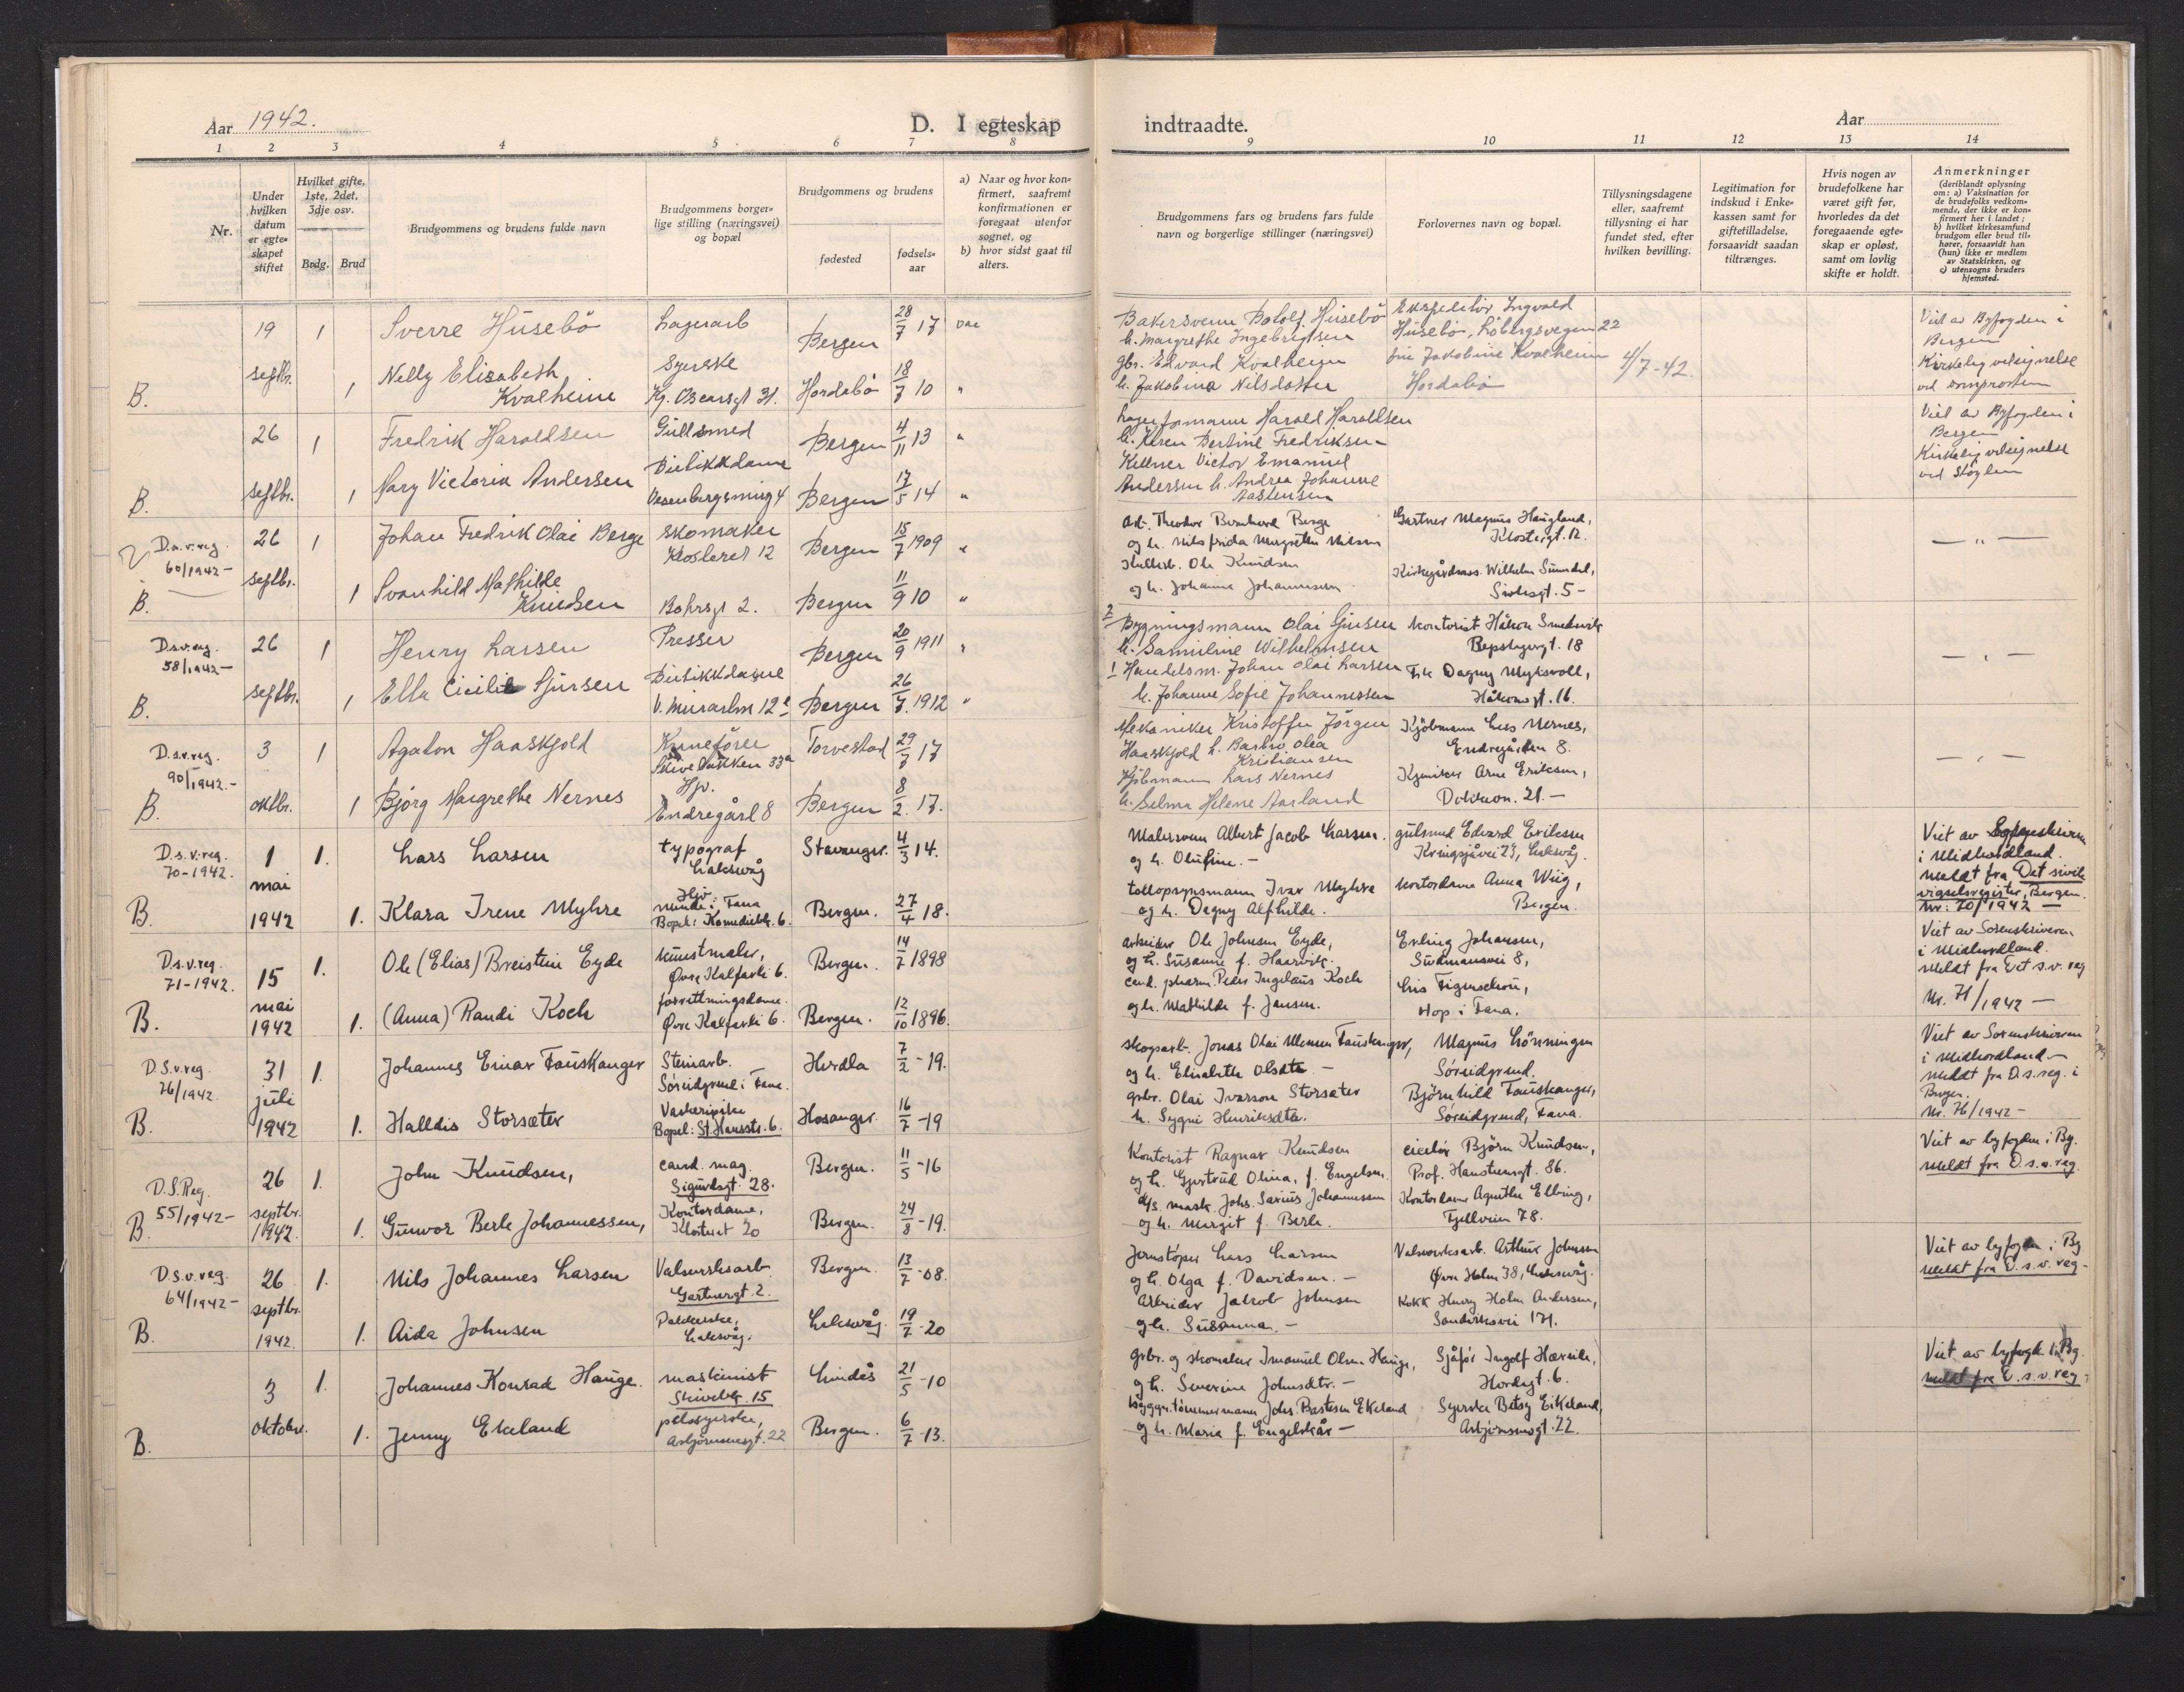 Aar 1942.
D. I egteskap
indtraadte.
Aar
1 2 3 4 5 6 7 8 9 10 11 12 13 14
Nr.
Under hvilken datum er egteskapet stiftet
Hvilket gifte, 1ste, 2det, 3dje osv.
Brdg. Brud
Brudgommens og brudens fulde navn
Brudgommens borgerlige stilling (næringsvei) og bopæl
Brudgommens og brudens
fødested
fødselsaar
a) Naar og hvor konfirmert, saafremt konfirmationen er foregaat utenfor sognet, og
b) hvor sidst gaat til alters.
Brudgommens fars og brudens fars fulde navn og borgerlige stillinger (næringsvei)
Forlovernes navn og bopæl.
Tillysningsdagene eller, saafremt tillysning ei har fundet sted, efter hvilken bevilling.
Legitimation for indskud i Enkekassen samt for giftetilladelse, forsaavidt saadan tiltrænges.
Hvis nogen av brudefolkene har været gift før, hvorledes da det foregaaende egteskap er opløst, samt om lovlig skifte er holdt.
Anmerkninger
(deriblandt oplysning om: a) Vaksination for de brudefolks vedkommende, der ikke er konfirmert her i landet; b) hvilket kirkesamfund brudgom eller brud tilhører, forsaavidt han (hun) ikke er medlem av Statskirken, og c) utensogns bruders hjemsted.
19 1 Sverre Husebö Lagerarb Bergen 28/7 17 vac
septbr. 1 Nelly Elisabeth Syerske 18/7 10 "
B. Kvalheim Kg. Oscarsgt 31. Hordabö
Husebö
h. Margrethe Ingebrigtsen
gbr. Edvard Kvalheim
h. Jakobina Nilsdatter
Ekspeditör Ingvald
Husebö, Löbergsvegen 22
frü Jakobine Kvalheim
Hordabö
4/7-42.
Viet av Byfogden i
Bergen
Kirkelig velsignelse
ved domprosten
26 1 Fredrik Haroldsen Gullsmed Bergen 4/11 13 "
septbr. 1 Mary Victoria Andersen Butikkdame
B. Bergen 17/5 14 "
Lagerformann Harold Haroldsen
h. Karen Bertine Fredriksen
Kellner Victor Emanuel
Andersen h. Andrea Johanne
Viet av Byfogden i
Bergen
Kirkelig velsignelse
D.s.v.reg. 60/1942- 26 1 Johan Fredrik Olai Berge Skomaker Klosteret 12 Bergen 15/7 1909 "
septbr. 1 Svanhild Mathilde
B. Knudsen Bohrsgt 2. Bergen 11/9 10 "
Arb. Theodor Bernhard Berge
og h. Nilsfrida Margrethe Nilsen
Ole Knudsen
og h. Johanne Johannessen
Gartner Magnus Haugland,
Klostergt. 12.
Wilhelm Sundal,
Sivlesgt. 5-
— " —
D.s.v.reg. 58/1942- 26 1 Henry Larsen Presser Bergen 20/9 1911 "
septbr. 1 Ella Cicilie Sjursen Butikkdame
B. V. Muralm 12 Bergen 26/7. 1912 "
2 Bygningsmann Olai Sjursen
h. Samuline Wilhelmsen
1 Handelsm. Johan Olai Larsen
h. Johanne Sofie Johannessen
Kontorist Håkon Smedsvik
Repslagergt. 18
Frk Dagny Myksvoll,
Håkonsgt. 16.
— " —
D.s.v.reg. 90/1942.- 3 1 Agaton Haaskjold Torvestad 29/3 17
Skivebakken 33a
oktbr. 1 Bjørg Margrethe Nernes Hjv.
B. Endregård 8 Bergen 8/2. 17.
Mekaniker Kristoffer Jörgen
Haaskjold h. Barbro Olea
Kristiansen
Kjöbmann Lars Nernes
h. Selma Helene Aarland
Kjöbmann Lars Nernes,
Endregården 8.
Arne Eriksen,
Dokken. 21.—
— " —
D.s.v.reg. 70-1942. 1 1. Lars Larsen typograf Laksevåg Stavanger. 4/3 14.
mai
B. 1942 1. Klara Irene Myhre Hjv. Minde i Fana Bopel: Komediebk. 6. Bergen. 27/4 18.
Malersvenn Albert Jacob Larsen.
og h. Olufine.—
tollopsynsmann Ivar Myhre
og h. Dagny Alfhilde.
gulsmed Edvard Eriksen
Kringsjåvei 23, Laksevåg.
Kontordame Anna Wiig,
Bergen.
Viet av Sorenskriveren
i Midhordland.
Meldt fra Det sivile
vigselsregister, Bergen
Nr: 70/1942 —
D.s.v.reg. 71-1942. 15 1. Ole (Elias) Breistein Eyde kunstmaler, Øvre Kalfarli 6. Bergen. 14/7 1898
mai
B. 1942 1. (Anna) Randi Koch forretningsdame. Øvre Kalfarli 6. Bergen. 12/10 1896.
Arbeider Ole Johnsen Eyde,
og h. Susanne f. Haarvik.
cand. pharm. Peder Ingelaus Koch
og h. Mathilde f. Jansen.
Erling Johansen,
Sudmannsvei 8,
Lris Figenschou,
Hop i Fana.
Viet av Sorenskriveren
i Midhordland.
Meldt fra Det s.v. reg
Nr. 71/1942 —
D.S.v.reg. 76/1942. 31 1. Johannes Einar Fauskanger Steinarb. Søreidgrend i Fana. Herdla 7/2 - 19.
juli
B. 1942 1. Halldis Storsæter Vaskeripike Bopel: St. Hansstr. 6. Hosanger. 16/7 -19
skogsarb. Jonas Olai Monsen Fauskanger,
og h. Elisabeth Olsdtr.—
gbr. Olai Ivarson Storsæter
h. Sygni Henriksdtr.
Magnus Lönningen
Søreidgrend.
Björnhild Fauskanger,
Søreidgrend, Fana.
Viet av Sorenskriveren
i Midhordland—
meldt fra D.s.reg. i
Bergen.
Nr. 76/1942-
D.S.Reg. 55/1942- 26 1. John Knudsen, cand. mag. Sigurdsgt. 28. Bergen. 11/5 -16
septbr.
B. 1942. 1. Gunvor Berle Johannessen, Kontordame, Klosteret 20 Bergen. 24/8 -19.
Kontorist Ragnar Knudsen
og h. Gjertrud Olina, f. Engelsen.
d/s. mask. Johs. Sarius Johannessen
og h. Margit f. Berle.
Björn Knudsen,
Prof. Hansteensgt. 86.
Kontordame Agnethe Elbing,
Fjellveien 78.
Viet av byfogden i Bg.
meldt fra D.s.v.reg.
D.s.v.reg. 64/1942- 26 1. Nils Johannes Larsen Valseverksarb. Gartnergt. 2. Bergen. 13/7 -08.
septbr.
B. 1942. 1. Aida Johnsen Pakkerske, Laksevåg. Laksevåg. 19/7 -20
Jernstöper Lars Larsen
og h. Olga f. Davidsen.—
Arbeider Jakob Johnsen
og h. Susanna.—
Valseverksarb. Arthur Johnsen
Øvre Holen 38, Laksevåg.
Kokk Henry Holm Andersen,
Sandviksvei 171.
Viet av byfogden i Bg
meldt fra D.s.v.reg-
3 1. Johannes Konrad Hauge. maskinist Skivebk. 15 Lindås 21/5 -10
oktober.
B. 1. Jenny Ekeland pelssyerske, Asbjørnsensgt. 22 Bergen. 6/7 -13.
gbr. og skomaker Imanuel Olsen Hauge,
og h. Severine Johnsdtr.—
byggn.tømmermann Johs. Bastesen Ekeland
og h. Maria f. Engelskår—
Sjåfør Ingolf Hæreik,
Hordagt. 6.
Syerske Betsy Eikeland,
Asbjørnsensgt. 22.
Viet av byfogd i Bg.
meldt fra D.s.v.reg